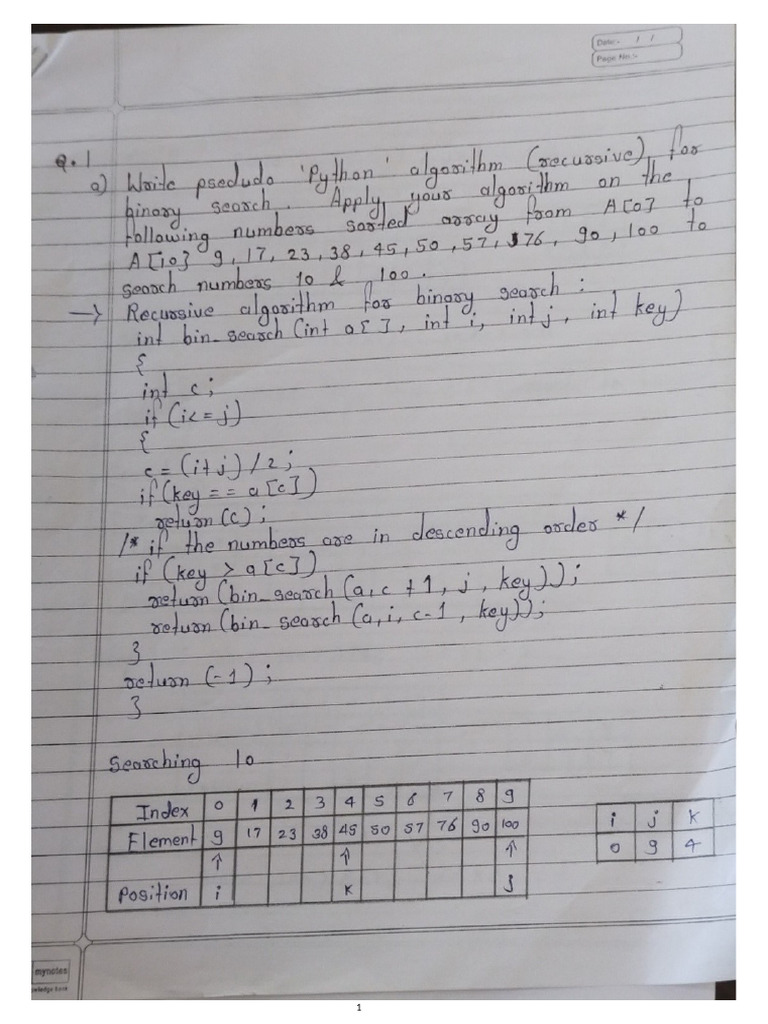 Date:- / /
Page No:-
Q.1
a) Write psedudo 'Python' algorithm (recursive) for
binary search. Apply your algorithm on the
following numbers sorted array from A[0] to
A[10] 9, 17, 23, 38, 45, 50, 57, 76, 90, 100 to
search numbers 10 & 100.
→ Recursive algorithm for binary search :
int bin_search (int a[], int i, int j, int key)
{
int c;
if (i<=j)
{
c = (i+j)/2;
if (key == a[c])
return (c);
/* if the numbers are in descending order */
if (key > a[c])
return (bin_search (a, c+1, j, key));
return (bin_search (a, i, c-1, key));
}
return (-1);
}
Searching 10
Index 0 1 2 3 4 5 6 7 8 9
i j k
Element 9 17 23 38 45 50 57 76 90 100
0 9 4
↑ ↑ ↑
Position i k j
mynotes
1